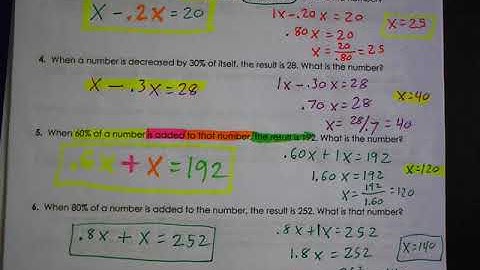 x - .2x = 20
1x - .20x = 20
.80x = 20
x = 20/.80 = 25
x = 25
4. When a number is decreased by 30% of itself, the result is 28. What is the number?
x - .3x = 28
1x - .30x = 28
.70x = 28
x = 28/.7 = 40
x = 40
5. When 60% of a number is added to that number, the result is 192. What is the number?
.6x + x = 192
.60x + 1x = 192
1.60x = 192
x = 192/1.60 = 120
x = 120
6. When 80% of a number is added to the number, the result is 252. What is that number?
.8x + x = 252
.8x + 1x = 252
1.8x = 252
x = 140